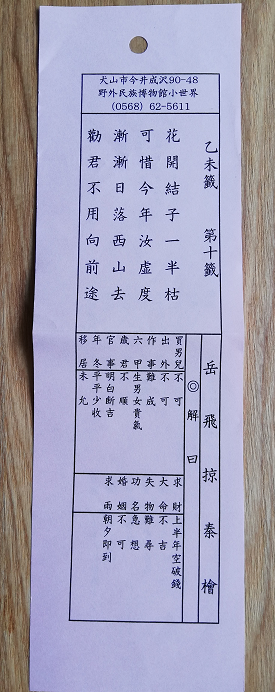 犬山市今井成沢90-48
野外民族博物館小世界
(0568) 62-5611
乙未籤 第十籤
花開結子一半枯
可惜今年汝虚度
漸漸日落西山去
勸君不用向前途
岳飛掠秦檜
◎解曰
求財上半年空破錢
大命不吉
失物難尋
功名急想
婚姻不可
求雨朝夕即到
買男兒不可
出外不可
作事難成
六甲生男女貴氣
歲君不順
官事明白斷吉
年冬平平少收
移居未允